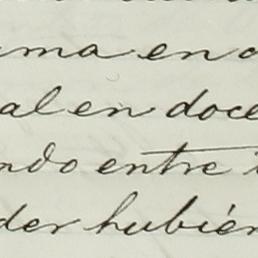 uma en
al en doce
ndo entre
der hubié